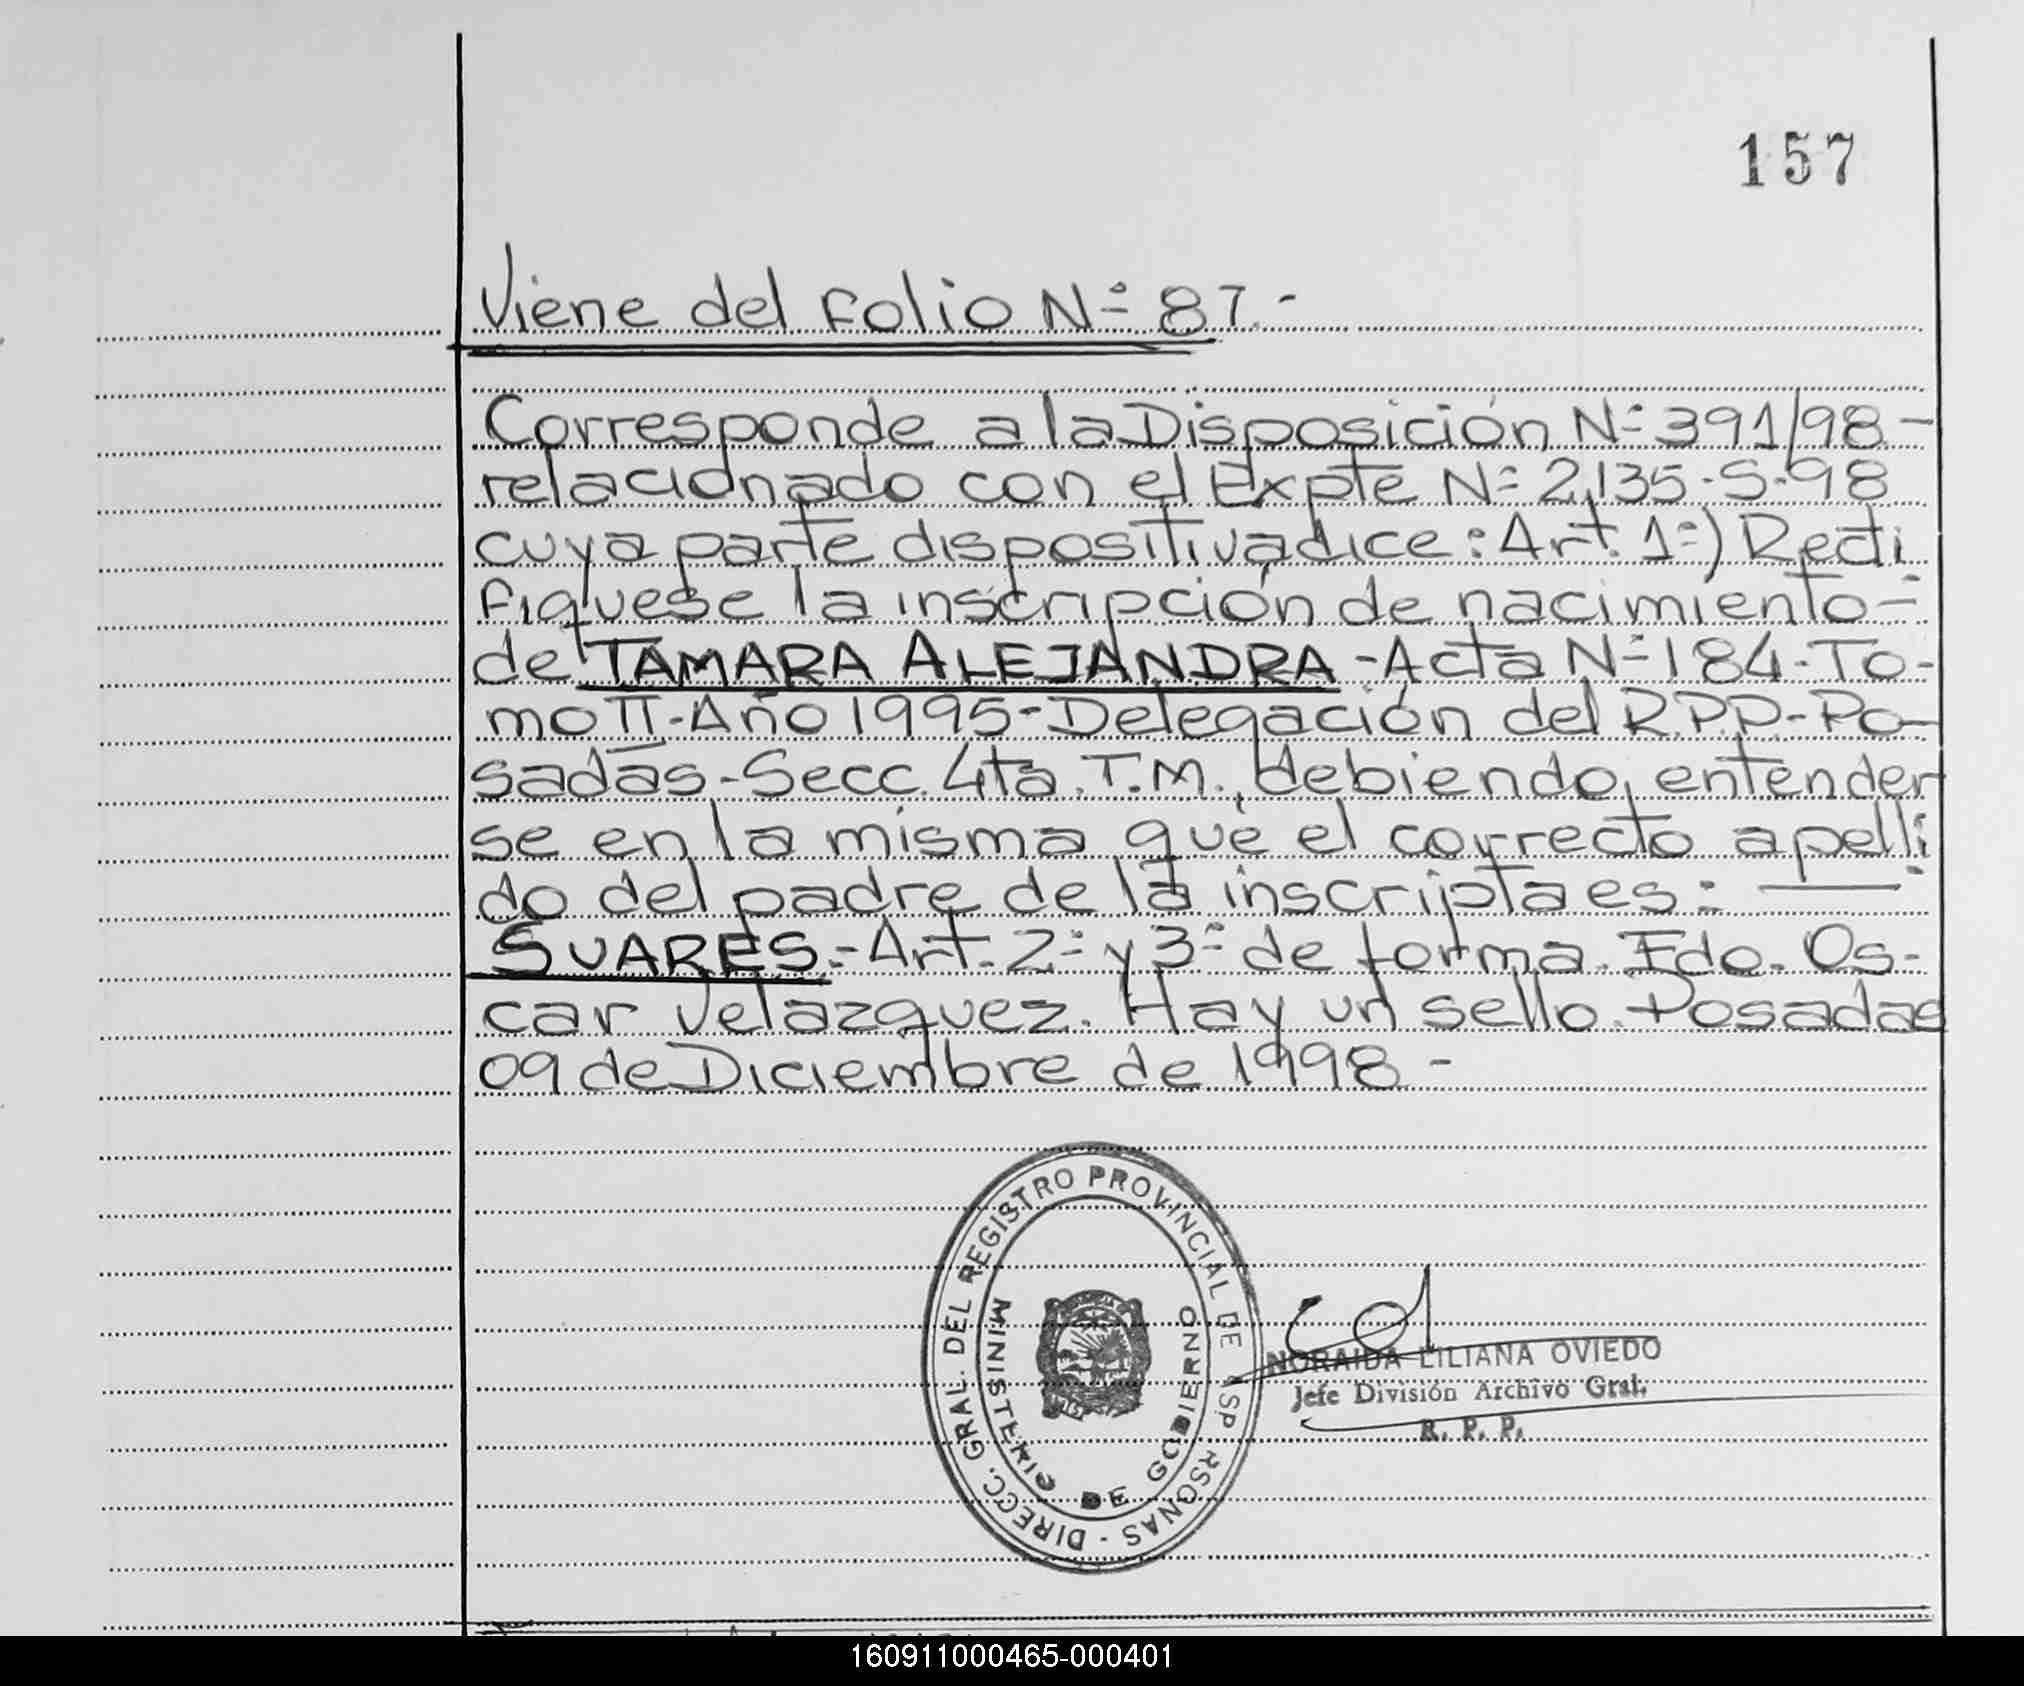 157
Viene del folio Nº 87.-
Corresponde a la Disposición Nº 391/98-
relacionado con el Expte Nº 2,135-S-98
cuya parte dispositiva dice: Art. 1º) Recti
fiquese la inscripción de nacimiento-
de TAMARA ALEJANDRA - Acta Nº 184-To-
mo II-Año 1995-Delegación del R.P.P.-Po-
sadas-Secc. 4ta. T.M., debiendo entender
se en la misma que el correcto apelli
do del padre de la inscripta es: —
SUARES.-Art. 2º y 3º de forma. Fdo. Os-
car Velazquez. Hay un sello. Posadas
09 de Diciembre de 1998-
DIRECC. GRAL. DEL REGISTRO PROVINCIAL DE
RSONAS -
MINISTERIO DE GOBIERNO
NORAIDA LILIANA OVIEDO
Jefe División Archivo Gral.
R. P. P.
160911000465-000401